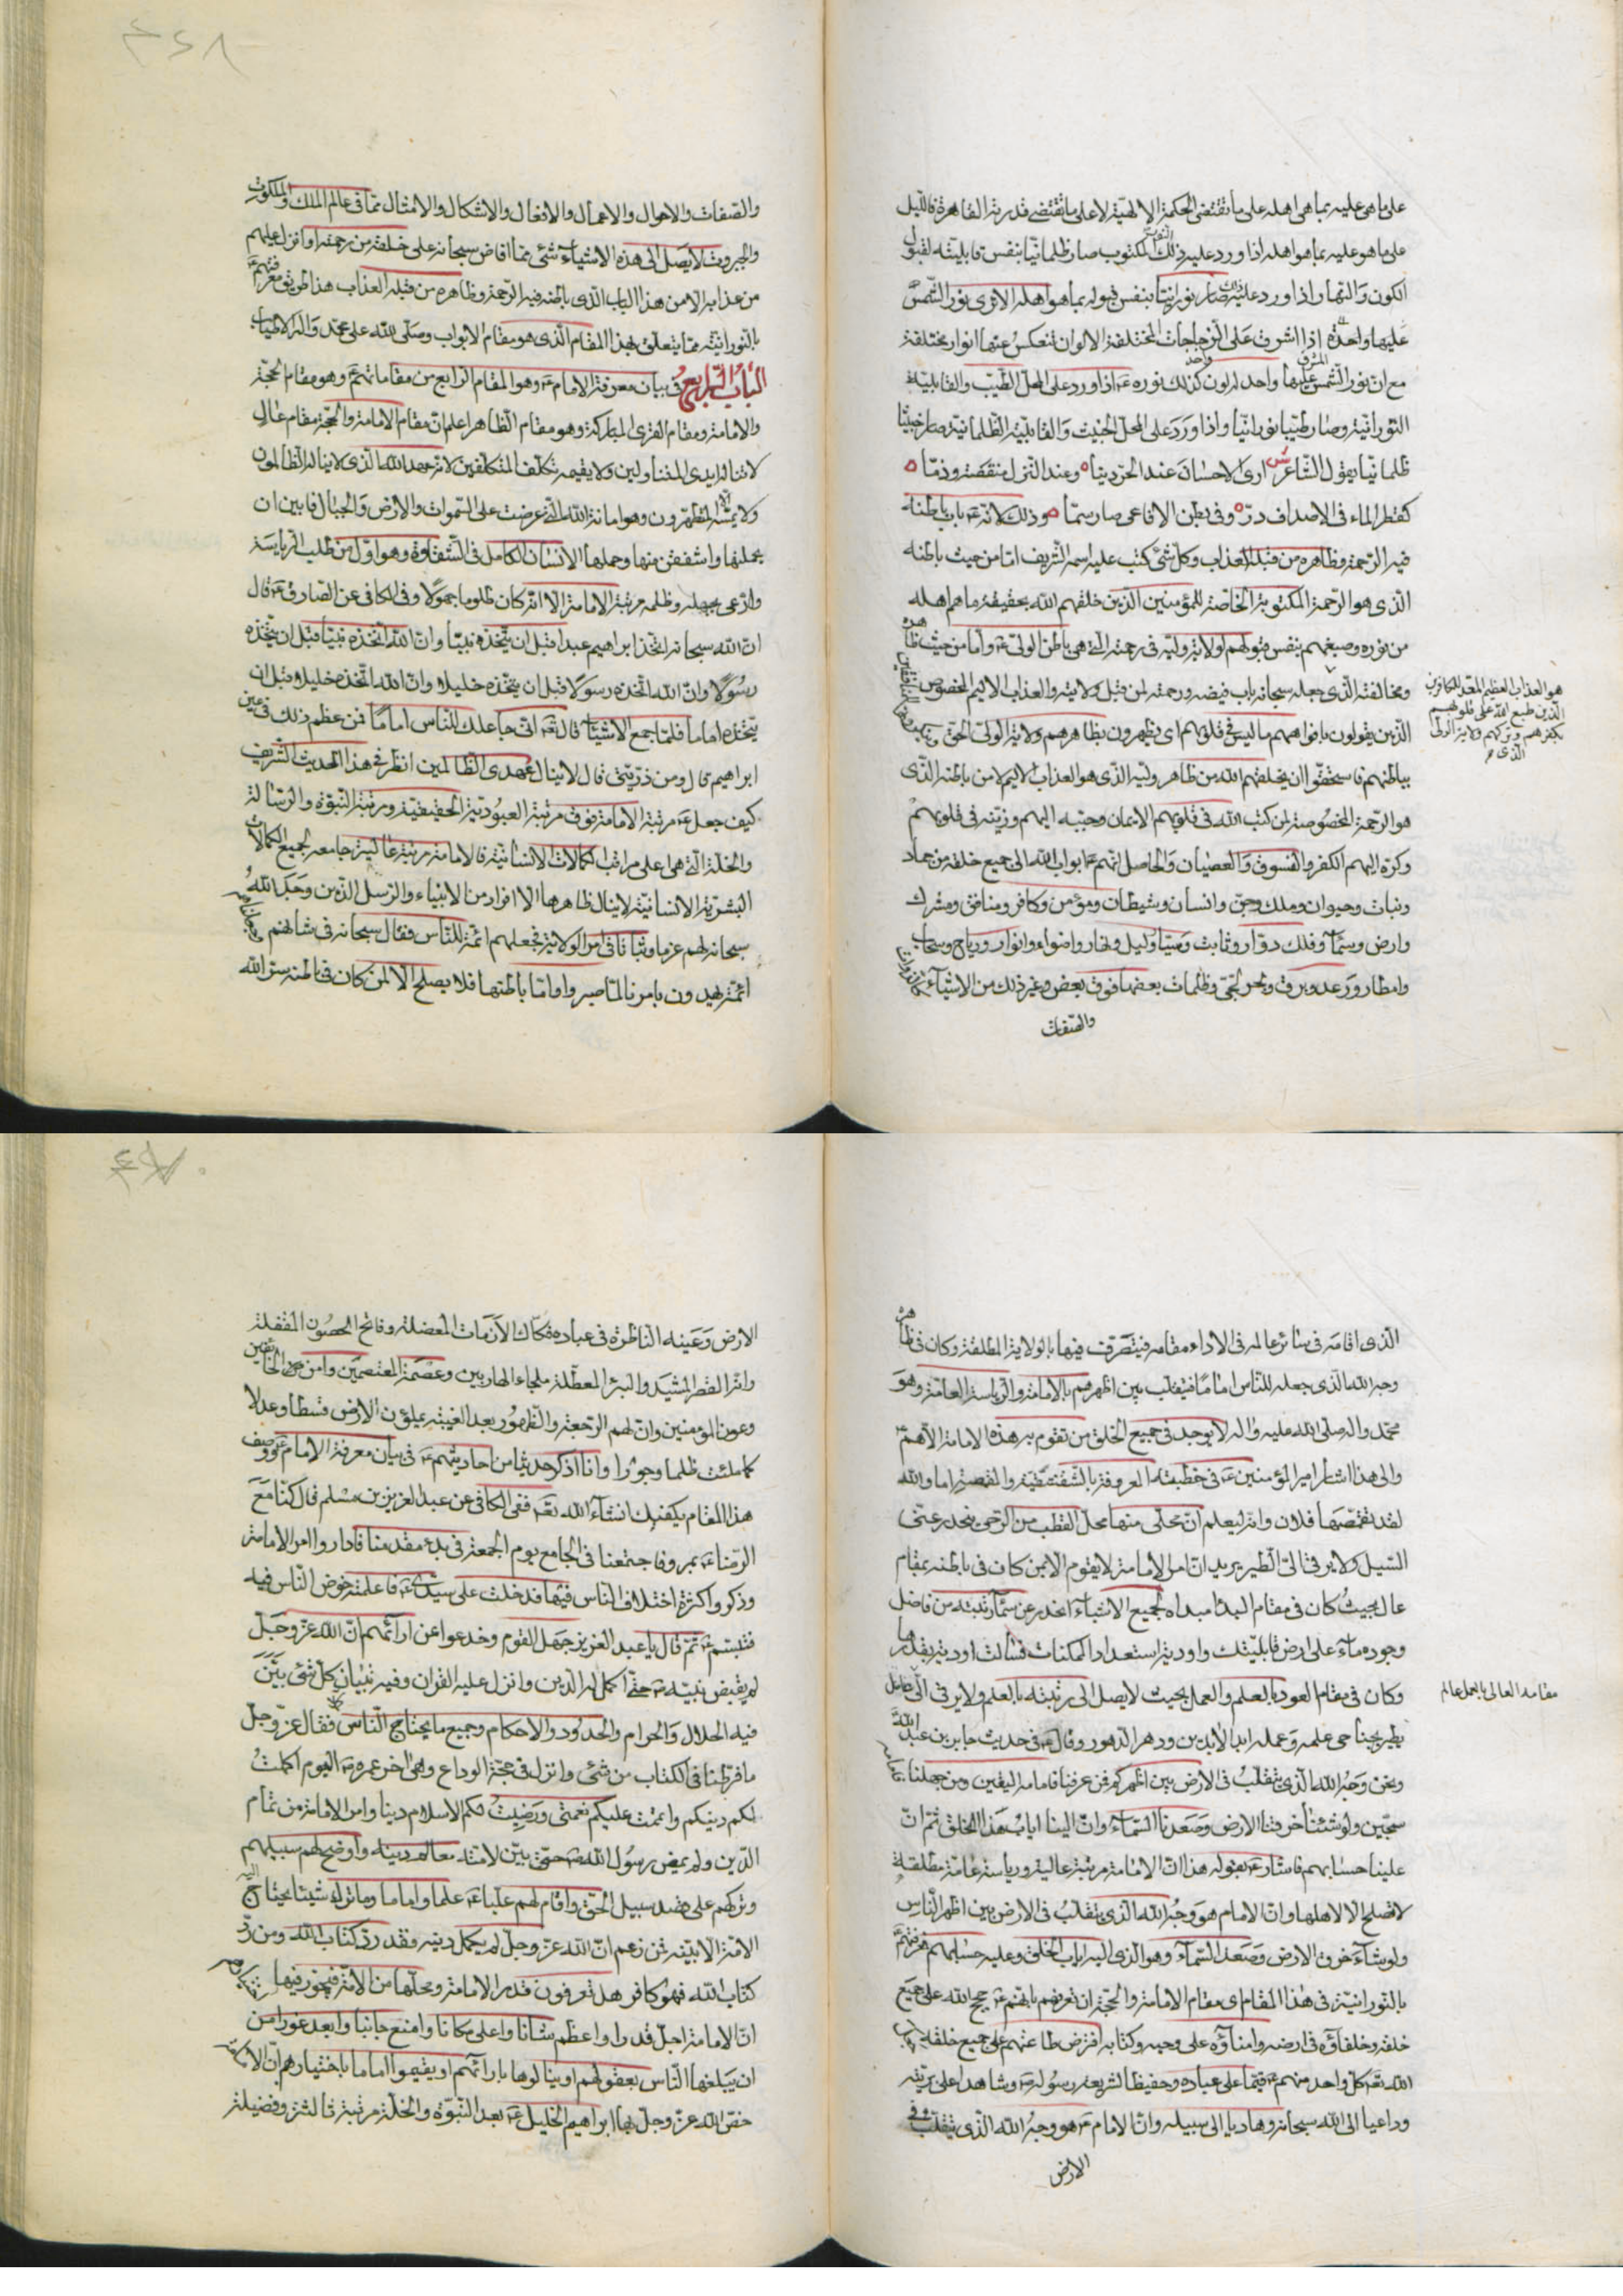 على ما هي عليه بما هي اهله على ما تقتضي الحكمة الالهية لا على ما تقتضيه قدرته القاهرة فالليل
على ما هو عليه بما هو اهله اذا ورد عليه ذلك المكتوب صار ظلمانيا بنفس قابليته لقبول
الكون والنهار اذا ورد عليه ذلك صار نورانيا بنفس قبوله بما هو اهله الا ترى نور الشمس
عليها واحدة اذا اشرق على الزجاجات المختلفة الالوان تنعكس عنها انوار مختلفة
مع ان نور الشمس المشرق عليها واحد لونه واحد كذلك نوره ع اذا ورد على المحل الطيب والقابلية
النورانية وصار طيبا نورانيا واذا ورد على المحل الخبيث والقابلية الظلمانية صار خبيثا
ظلمانيا يقول الشاعر ش ارى الاحسان عند الحر دينا وعند النزل منقصة وذما
كقطر الماء في الاصداف در وفي بطن الافاعي صار سما وذلك لانه ع باب باطنه
فيه الرحمة وظاهره من قبله العذاب وكل شيء كتب عليه اسمه الشريف اما من حيث باطنه
الذي هو الرحمة المكتوبة الخاصة للمؤمنين الذين خلقهم الله بحقيقة ما هم اهله
من نوره وصبغهم بنفس قبولهم لولاية وليه في رحمته التي هي باطن الولي ع واما من حيث ظاهره
ومخالفته الذي جعله سبحانه باب فيضه ورحمته لمن قبل ولايته والعذاب الاليم المخصوص
الذين يقولون بافواههم ما ليس في قلوبهم اي يظهرون بظاهرهم ولاية الولي الحق
بباطنهم فاستحقوا ان يخلقهم الله من ظاهر وليه الذي هو العذاب الاليم لا من باطنه الذي
هو الرحمة المخصوصة لمن كتب الله في قلوبهم الايمان وحببه اليهم وزينه في قلوبهم
وكره اليهم الكفر والفسوق والعصيان والحاصل انهم ع ابواب الله الى جميع خلقه من جماد
ونبات وحيوان وملك وجن وانسان وشيطان ومؤمن وكافر ومنافق ومشرك
وارض وسماء وفلك دوار وثابت وميتا وليل ونهار واضواء وانوار ورياح وسحاب
وامطار ورعد وبرق وبحر لجي وظلمات بعضها فوق بعض وغير ذلك من الاشياء
والصفات
هو العذاب العظيم المعد للكافرين
الذين طبع الله على قلوبهم
بكفرهم وتركهم ولاية الولي
الذي
٤٢٨
والصفات والاحوال والاعمال والافعال والاشكال والامثال مما في عالم الملك والملكوت
والجبروت لا يصل الى هذه الاشياء شيء مما افاض سبحانه على خلقه من رحمته او انزل عليهم
من عذابه الا من هذا الباب الذي باطنه فيه الرحمة وظاهره من قبله العذاب هذا طريق معرفتهم ع
بالنورانية مما يتعلق بهذا المقام الذي هو مقام الابواب وصلى الله على محمد واله الاطياب
الباب الرابع في بيان معرفة الامام ع وهو المقام الرابع من مقاماتهم ع وهو مقام الحجة
والامامة ومقام القرى المباركة وهو مقام الظاهر اعلم ان مقام الامامة والحجة مقام عال
لا تناله ايدي المتناولين ولا يقيمه تكلف المتكلفين لانه عهد الله الذي لا يناله الظالمون
ولا يمسه الا المطهرون وهو امانة الله التي عرضت على السموات والارض والجبال فابين ان
يحملنها واشفقن منها وحملها الانسان الكامل في الشقاوة وهو اول من طلب الرياسة
وادعى بجهله وظلمه مرتبة الامامة الا انه كان ظلوما جهولا وفي الكافي عن الصادق ع قال
ان الله سبحانه اتخذ ابراهيم عبدا قبل ان يتخذه نبيا وان الله اتخذه نبيا قبل ان يتخذه
رسولا وان الله اتخذه رسولا قبل ان يتخذه خليلا وان الله اتخذه خليلا قبل ان
يتخذه اماما فلما جمع الاشياء قال ع اني جاعلك للناس اماما فمن عظم ذلك في عين
ابراهيم قال ومن ذريتي قال لا ينال عهدي الظالمين انظر في هذا الحديث الشريف
كيف جعل ع مرتبة الامامة فوق مرتبة العبودية الحقيقية ومرتبة النبوة والرسالة
والخلة التي هي اعلى مراتب الكمالات الانسانية فالامامة مرتبة عالية جامعة لجميع الكمالات
البشرية الانسانية لا ينال ظاهرها الا افراد من الانبياء والرسل الذين وجد الله
سبحانه لهم عزما وثباتا في امر الولاية فجعلهم ائمة للناس فقال سبحانه في شانهم
ائمة يهدون بامرنا لما صبروا واما باطنها فلا يصلح الا لمن كان في باطنه سر الله
الذي اقامه في سائر عالمه في الاداء مقامه فيتصرف فيها بالولاية المطلقة وكان في ظاهره
وجه الله الذي جعله للناس اماما فيتقلب بين اظهرهم بالامامة والرياسة العامة وهو
محمد واله صلى الله عليه واله لا يوجد في جميع الخلق من تقوم به هذه الامامة الا هم ع
والى هذا اشار امير المؤمنين ع في خطبته المعروفة بالشقشقية والقمصية اما والله
لقد تقمصها فلان وانه ليعلم ان محلي منها محل القطب من الرحى ينحدر عني
السيل ولا يرقى الي الطير يريد ان امر الامامة لا يقوم الا بمن كان في باطنه بمقام
عال بحيث كان في مقام البدء مبداه لجميع الاشياء انحدر عن سماء رتبته من فاضل
وجوده ماء على ارض قابليتك واودية استعداد الممكنات فسالت اودية بقدرها
وكان في مقام العود بالعلم والعمل بحيث لا يصل الى رتبته بالعلم ولا يرقى الى
يطير بجناحي علمه وعمله ابد الابدين ودهر الدهور وقال ع في حديث جابر بن عبد الله
ونحن وجه الله الذي يتقلب في الارض بين اظهركم فمن عرفنا فامامه اليقين ومن جهلنا فامامه
سجين ولو شئنا خرقنا الارض وصعدنا السماء وان الينا اياب هذا الخلق ثم ان
علينا حسابهم فاشار ع بقوله هذا ان الامامة مرتبة عالية ورياسة عامة مطلقة
لا تصلح الا لاهلها وان الامام هو وجه الله الذي يتقلب في الارض بين اظهر الناس
ولو شاء خرق الارض وصعد السماء وهو الذي اليه اياب الخلق وعليه حسابهم فمعرفتهم ع
بالنورانية في هذا المقام اي مقام الامامة والحجة ان تعرفهم بانهم ع حجج الله على جميع
خلقه وخلفاؤه في ارضه وامناؤه على وحيه وكتابه افترض طاعتهم على جميع خلقه
الله تعالى كل واحد منهم ع قيما على عباده وحفيظا لشريعة رسوله ص وشاهدا على بريته
وداعيا الى الله سبحانه وهاديا الى سبيله وان الامام ع هو وجه الله الذي يتقلب في
الارض
مقامه العالي بالعمل عالم
الارض وعينه الناظرة في عباده فكاك الازمات المعضلة وفاتح الحصون المقفلة
وانه القصر المشيد والبئر المعطلة ملجاء الهاربين وعصمة المعتصمين وامن الخائفين
وعون المؤمنين وان لهم الرجعة والظهور بعد الغيبة يملؤن الارض قسطا وعدلا
كما ملئت ظلما وجورا وانا اذكر حديثا من احاديثهم ع في بيان معرفة الامام ع ووصف
هذا المقام يكفيك انشاء الله تعالى ففي الكافي عن عبد العزيز بن مسلم قال كنا مع
الرضا ع بمرو فاجتمعنا في الجامع يوم الجمعة في بدء مقدمنا فاداروا امر الامامة
وذكروا كثرة اختلاف الناس فيها فدخلت على سيدي ع فاعلمته خوض الناس فيه
فتبسم ع ثم قال يا عبد العزيز جهل القوم وخدعوا عن ارائهم ان الله عز وجل
لم يقبض نبيه ص حتى اكمل له الدين وانزل عليه القران وفيه تبيان كل شيء بين
فيه الحلال والحرام والحدود والاحكام وجميع ما يحتاج الناس فقال عز وجل
ما فرطنا في الكتاب من شيء وانزل في حجة الوداع وهي اخر عمره ص اليوم اكملت
لكم دينكم واتممت عليكم نعمتي ورضيت لكم الاسلام دينا وامر الامامة من تمام
الدين ولم يمض رسول الله ص حتى بين لامته معالم دينه واوضح لهم سبيلهم
وتركهم على قصد سبيل الحق واقام لهم عليا ع علما واماما وما ترك شيئا يحتاج اليه
الامة الا بينه فمن زعم ان الله عز وجل لم يكمل دينه فقد رد كتاب الله ومن رد
كتاب الله فهو كافر هل تعرفون قدر الامامة ومحلها من الامة فيجوز فيها
ان الامامة اجل قدرا واعظم شانا واعلى مكانا وامنع جانبا وابعد غورا من
ان يبلغها الناس بعقولهم او ينالوها بارائهم او يقيموا اماما باختيارهم ان الامامة
خص الله عز وجل بها ابراهيم الخليل ع بعد النبوة والخلة مرتبة ثالثة وفضيلة